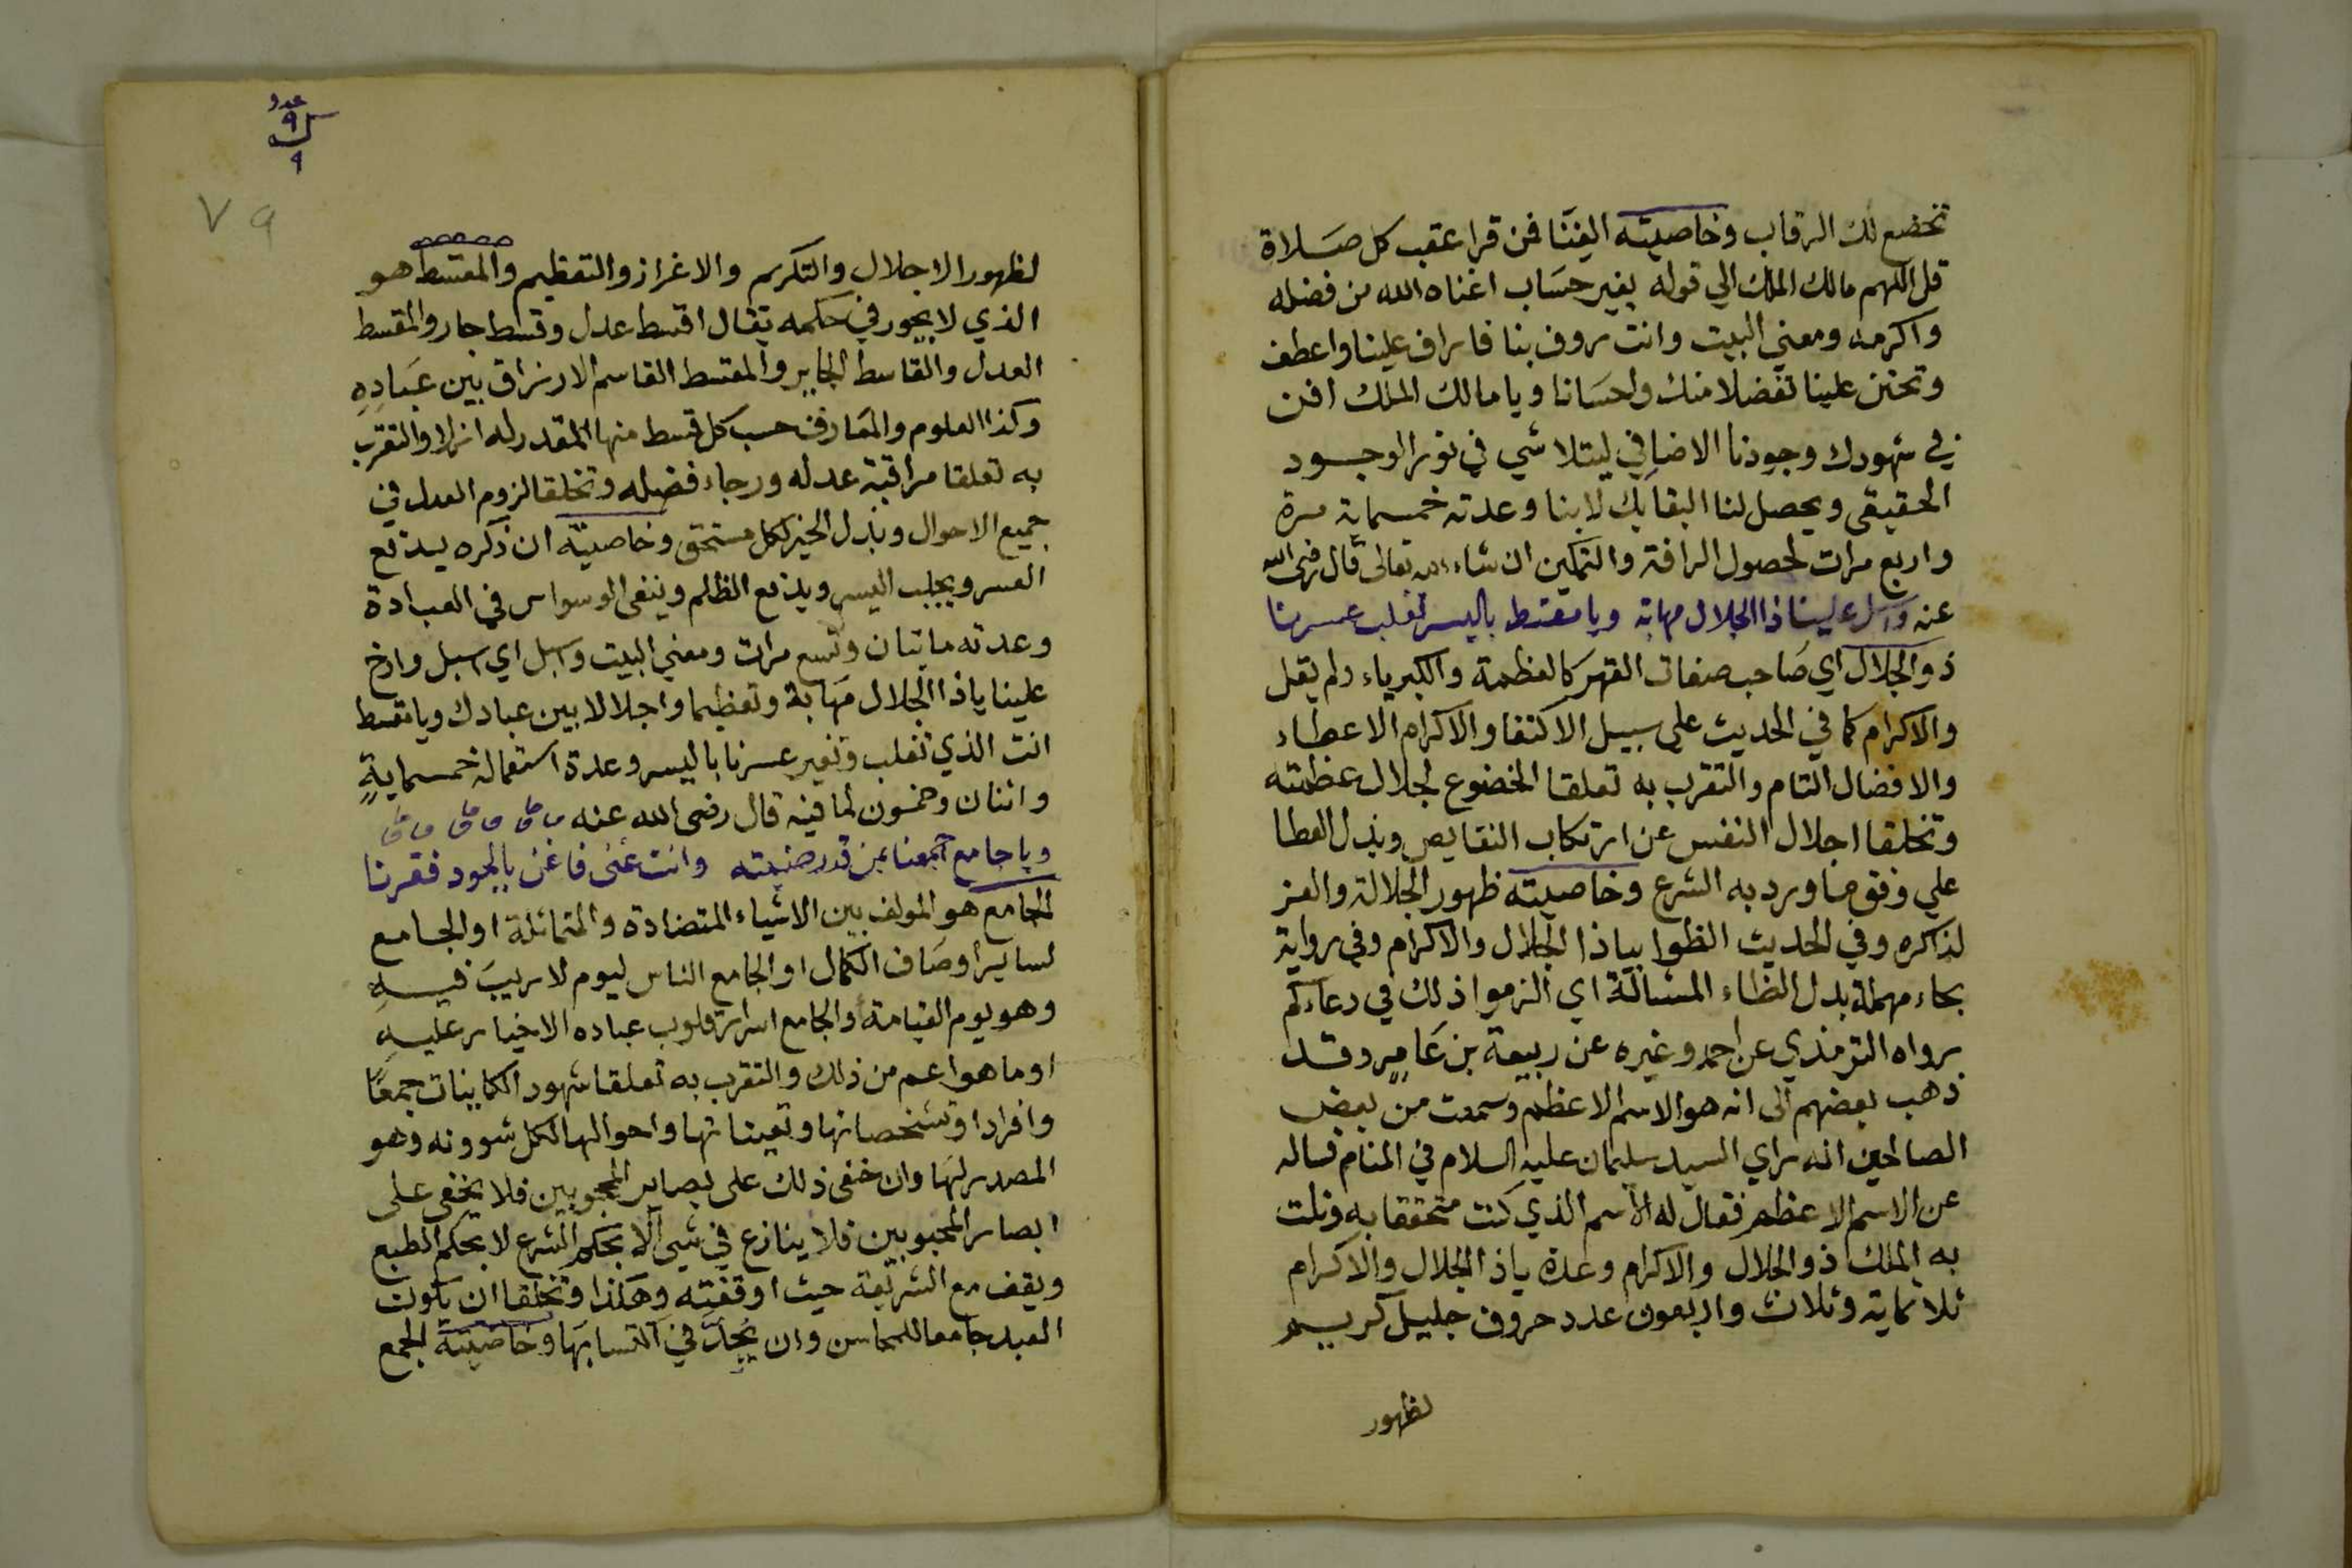 تخضع لك الرقاب وخاصيته الغنا فمن قرا عقب كل صلاة
قل اللهم مالك الملك الي قوله بغير حساب اغناه الله من فضله
واكرمه ومعني البيت وانت روف بنا فاراف علينا واعطف
وتحنن علينا تفضلا منك واحسانا ويا مالك الملك افن
في شهودك وجودنا الاضافي ليتلاشي في نور الوجود
الحقيقي ويحصل لنا البقا بك لا بنا وعدته خمسماية مرة
واربع مرات لحصول الرافة والتمكين ان شاء الله تعالى قال رضى الله
عنه واسبل علينا ذا الجلال مهابة ويا مقسط باليسر تغلب عسرنا
ذو الجلال اي صاحب صفات القهر كالعظمة والكبرياء ولم يقل
والاكرام كما في الحديث على سبيل الاكتفا والاكرام الاعطاء
والافضال التام والتقرب به تعلقا الخضوع لجلال عظمته
وتخلقا اجلال النفس عن ارتكاب النقايص وبذل العطا
علي وفق ما ورد به الشرع وخاصيته ظهور الجلالة والعز
لذاكره وفي الحديث الظوا بياذا الجلال والاكرام وفي رواية
بحاء مهملة بدل الظاء المشالة اي الزموا ذلك في دعاءكم
رواه الترمذي عن احمد وغيره عن ربيعة بن عامر وقد
ذهب بعضهم الى انه هو الاسم الاعظم وسمعت من بعض
الصالحين انه راي السيد سليمان عليه السلام في المنام فساله
عن الاسم الاعظم فقال له الاسم الذي كنت متحققا به ونلت
به الملك ذو الجلال والاكرام وعدة ياذا الجلال والاكرام
ثلاثماية وثلاث واربعون عدد حروف جليل كريم
لظهور
عدد
٩
ك
٩
٧٩
لظهور الاجلال والتكريم والاعزاز والتعظيم والمقسط هو
الذي لا يجور في حكمه يقال اقسط عدل وقسط جار والمقسط
العدل والقاسط الجاير والمقسط القاسم الارزاق بين عباده
وكذا العلوم والمعارف حسب كل قسط منها المقدر له ازلا والتقرب
به تعلقا مراقبة عدله ورجاء فضله وتخلقا لزوم العدل في
جميع الاحوال وبذل الخير لكل مستحق وخاصيته ان ذكره يدفع
العسر ويجلب اليسر ويدفع الظلم وينفى الوسواس في العبادة
وعدته مايتان وتسع مرات ومعني البيت واسبل اي اسبل وارخ
علينا ياذا الجلال مهابة وتعظيما واجلالا بين عبادك ويا مقسط
انت الذي تغلب وتغير عسرنا باليسر وعدة استعماله خمسماية
واثنان وخمسون لما فيه قال رضى الله عنه
ويا جامع اجمعنا بمن قدر ضيته وانت غنى فاغن بالجود فقرنا
الجامع هو المولف بين الاشياء المتضادة والمتماثلة او الجامع
لساير اوصاف الكمال او الجامع الناس ليوم لا ريب فيه
وهو يوم القيامة والجامع اسرار قلوب عباده الاخيار عليه
او ما هو اعم من ذلك والتقرب به تعلقا شهود الكاينات جمعا
وافرادا وتشخصاتها وتعيناتها واحوالها لكل شوونه وهو
المصدر لها وان خفى ذلك على بصاير المحجوبين فلا يخفى على
ابصار المحبوبين فلا ينازع في شي الا بحكم الشرع لا بحكم الطبع
ويقف مع الشريعة حيث اوقفته وهكذا وتخلقا ان يكون
العبد جامعا للمحاسن وان يجد في اكتسابها وخاصيته الجمع